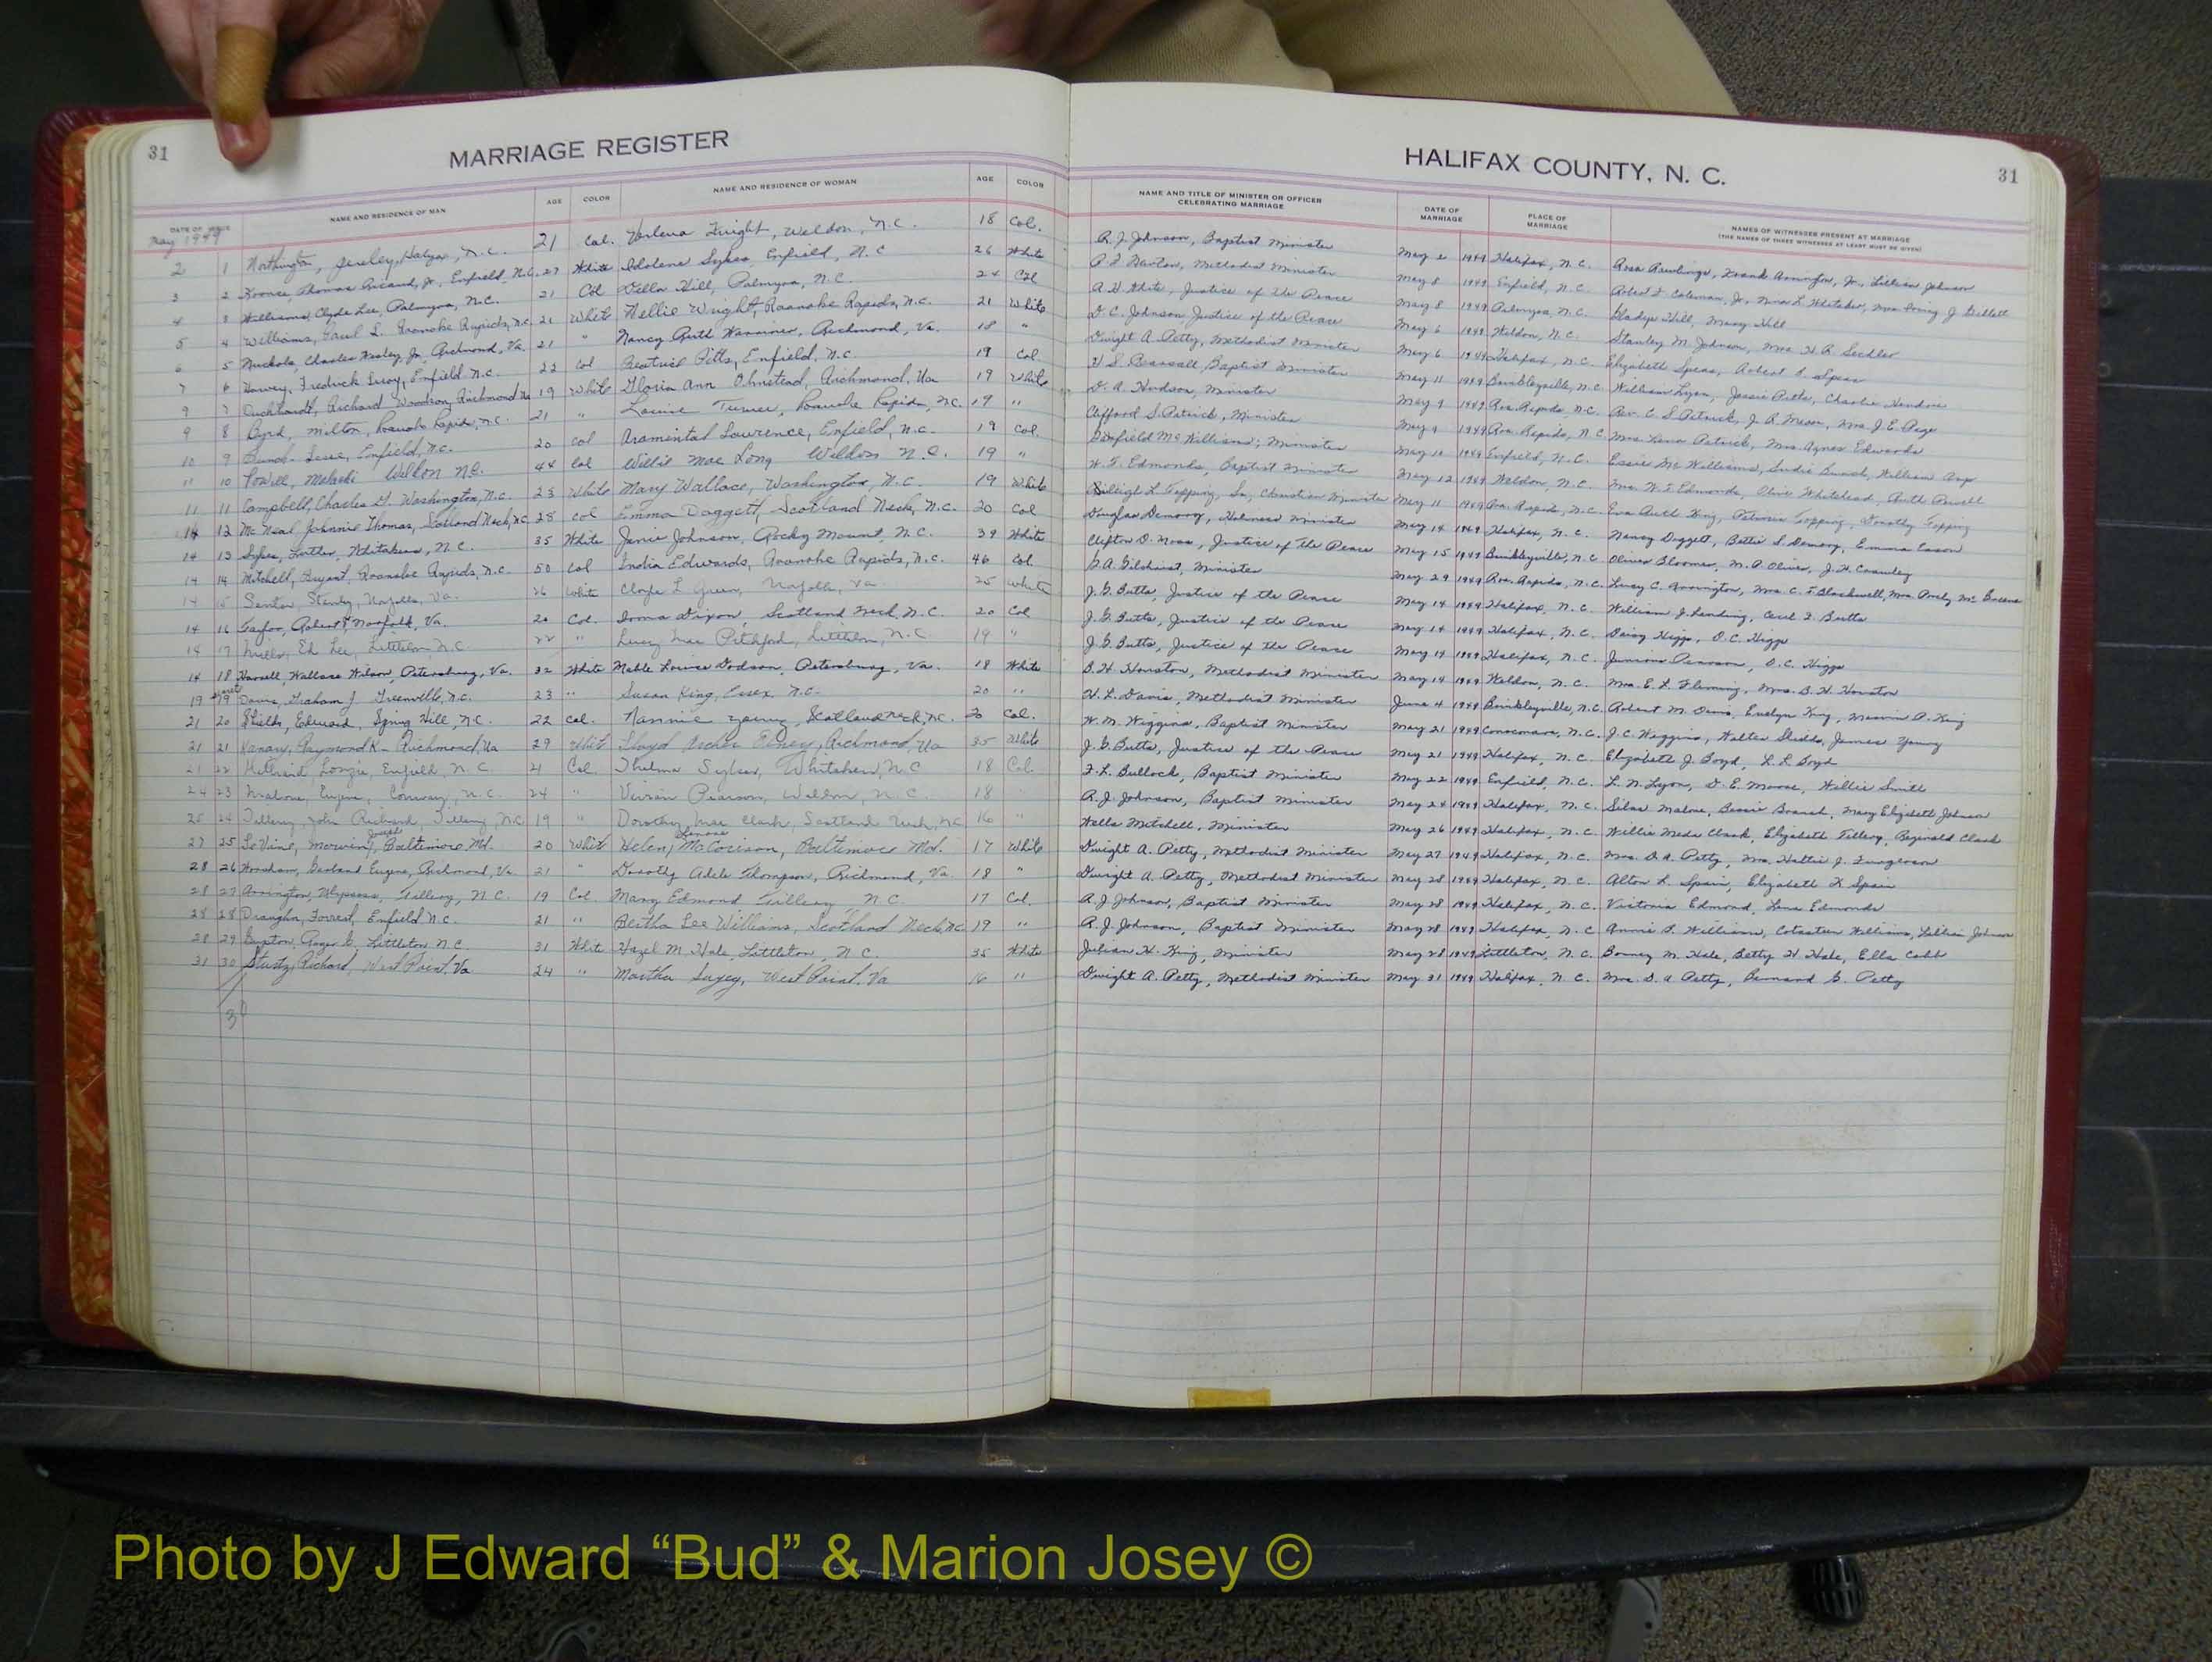 31
MARRIAGE REGISTER
DATE OF ISSUE
NAME AND RESIDENCE OF MAN
AGE
COLOR
NAME AND RESIDENCE OF WOMAN
AGE
COLOR
May 1949
2 1 Northington, Halifax, N.C. 21 Col. Weldon, N.C. 18 Col.
3 2 Thomas Jr, Enfield, N.C. 27 White Sykes, Enfield, N.C 26 White
4 3 Williams, Clyde Lee, Palmyra, N.C. 21 Col Della Hill, Palmyra, N.C. 24 Col
5 4 Williams, L. Roanoke Rapids, N.C. 21 White Nellie Wright, Roanoke Rapids, N.C. 21 White
6 5 Nuckols, Charles Wesley, Jr, Richmond, Va. 21 " Nancy Ruth Richmond, Va. 18 "
7 6 Harvey, Fredrick Leroy, Enfield, N.C. 22 Col Beatrice Pitts, Enfield, N.C. 19 Col.
9 7 Richard Woodson, Richmond Va 19 White Gloria Ann Olmstead, Richmond, Va 19 White
9 8 Byrd, Milton, Roanoke Rapids, N.C. 21 " Louise Turner, Roanoke Rapids, N.C. 19 "
10 9 Bunch Jesse, Enfield, N.C. 20 Col Lawrence, Enfield, N.C. 19 Col.
11 10 Powell, Weldon N.C. 44 Col Willie Mae Long Weldon N.C. 19 "
11 11 Campbell, Charles Washington, N.C. 23 White Mary Wallace, Washington, N.C. 19 White
14 12 McNeal Johnnie Thomas, Scotland Neck, N.C. 28 Col Emma Daggett, Scotland Neck, N.C. 20 Col
14 13 Sykes, Luther, Whitakers, N.C. 35 White Janie Johnson, Rocky Mount, N.C. 39 White
14 14 Mitchell, Bryant, Roanoke Rapids, N.C. 50 Col India Edwards, Roanoke Rapids, N.C. 46 Col.
14 15 Va. 26 White L Green, Norfolk, Va 25 White
14 16 Taylor, Robert, Norfolk, Va. 20 Col. Dixon, Scotland Neck, N.C. 20 Col
14 17 Mills, Ed Lee, Littleton N.C. 22 " Lucy Mae Pitchford, Littleton, N.C. 19 "
14 18 Harrell, Wallace Wilson, Petersburg, Va. 32 White Mable Louise Dodson, Petersburg, Va. 18 White
19 19 Davis, Graham J Greenville, N.C. 23 " Susan King, Essex, N.C. 20 "
21 20 Shields, Edward, Spring Hill, N.C. 22 Col. Nannie Young, Scotland Neck, N.C. 20 Col.
21 21 Raymond K Richmond, Va 29 White Richmond, Va 35 White
21 22 Enfield, N.C. 21 Col. Thelma N.C 18 Col
24 23 Malone, Eugene, Conway, N.C. 24 " Pearson, Weldon, N.C. 18
25 24 Tillery, John Richard, Tillery, N.C 19 " Dorothy Mae Clark, Scotland Neck, N.C. 16 "
27 25 LeVine, Joseph Baltimore Md. 20 White Helen Baltimore Md. 17 White
28 26 Eugene, Richmond, Va. 21 " Dorothy Adele Richmond, Va. 18 "
28 27 Arrington, Ulysses, Tillery, N.C. 19 Col. Mary Edmond Tillery N.C. 17 Col.
28 28 Draughn, Forrest, Enfield N.C. 21 " Bertha Lee Williams, Scotland Neck, N.C. 19 "
28 29 Littleton N.C. 31 White Hazel M. Hale, Littleton, N.C. 35 White
31 30 Stutz, Richard, West Point, Va 24 " Martha West Point, Va 16 "
30
HALIFAX COUNTY, N. C.
31
NAME AND TITLE OF MINISTER OR OFFICER
CELEBRATING MARRIAGE
DATE OF
MARRIAGE
PLACE OF
MARRIAGE
NAMES OF WITNESSES PRESENT AT MARRIAGE
(THE NAMES OF THREE WITNESSES AT LEAST MUST BE GIVEN)
R. J. Johnson, Baptist Minister May 2 1949 Halifax, N.C. Rosa Rawlings, Frank Arrington, Jr., Lillian Johnson
Methodist Minister May 8 1949 Enfield, N.C. Robert Coleman, Jr, L. Whitaker, Mrs. Irving J. Gillett
Justice of the Peace May 8 1949 Palmyra, N.C. Gladys Hill, Mary Hill
D. C. Johnson Justice of the Peace May 6 1949 Weldon, N.C. Stanley M. Johnson, Mrs. H. R. Sechler
Dwight A. Petty, Methodist Minister May 6 1949 Halifax, N.C. Elizabeth Spears,
Baptist Minister May 11 1949 Brinkleyville, N.C William Lyon, Jessie Pitts, Charlie
D. A. Hudson, Minister May 9 1949 Roa. Rapids, N.C. Rev. C. S. Patrick, Mrs. J. E. Page
Clifford S. Patrick, Minister May 9 1949 Roa. Rapids, N.C. Mrs. Patrick, Mrs. Agnes Edwards
McWilliams, Minister May 10 1949 Enfield, N.C. Essie McWilliams, Bunch, William
W. T. Edmonds, Baptist Minister May 12 1949 Weldon, N.C. Mrs. W. T. Edmonds, Olive Whitehead, Ruth Powell
L. Topping, Sr, Christian Minister May 11 1949 Roa. Rapids, N.C. Eva Ruth King, Topping, Dorothy Topping
Douglas Demory, Holiness Minister May 14 1949 Halifax, N.C. Nancy Daggett, Bettie S. Demory, Emma Eason
Clifton D. Moss, Justice of the Peace May 15 1949 Brinkleyville, N.C Oliver Bloomer, M. P. Oliver, J. H.
Gilchrist, Minister May 29 1949 Roa. Rapids, N.C. Lucy C. Arrington, Mrs. C. T. Blackwell, Mrs.
J. G. Butts, Justice of the Peace May 14 1949 Halifax, N.C. William J. Cecil T. Butts
J. G. Butts, Justice of the Peace May 14 1949 Halifax, N.C. Daisy Higgs, O. C. Higgs
J. G. Butts, Justice of the Peace May 14 1949 Halifax, N.C. Junious Pearson, O. C. Higgs
B. H. Houston, Methodist Minister May 14 1949 Weldon, N.C. Mrs. E. L. Fleming, Mrs. B. H. Houston
H. L. Davis, Methodist Minister June 4 1949 Brinkleyville, N.C. Robert M. Davis, Evelyn King, P. King
W. M. Wiggins, Baptist Minister May 21 1949 N.C. J. C. Wiggins, Walter Shields, James Young
J. G. Butts, Justice of the Peace May 21 1949 Halifax, N.C. Elizabeth J. Boyd, L. L. Boyd
F. L. Bullock, Baptist Minister May 22 1949 Enfield, N.C. L. N. Lyon, D. E. Moore, Willie Smith
R. J. Johnson, Baptist Minister May 24 1949 Halifax, N.C. Silas Malone, Bessie Branch, Mary Elizabeth Johnson
Wells Mitchell, Minister May 26 1949 Halifax, N.C. Willie Meda Clark, Elizabeth Tillery, Reginald Clark
Dwight A. Petty, Methodist Minister May 27 1949 Halifax, N.C. Mrs. D. A. Petty, Mrs. Hattie J. Furgerson
Dwight A. Petty, Methodist Minister May 28 1949 Halifax, N.C. Alton L. Spain, Elizabeth K Spain
R. J. Johnson, Baptist Minister May 28 1949 Halifax, N.C. Victoria Edmond, Lena Edmonds
R. J. Johnson, Baptist Minister May 28 1949 Halifax, N.C Annie Williams, Williams, Lillian Johnson
Julian H. King, Minister May 28 1949 Littleton, N.C. Bonney M. Hale, Betty H Hale, Ella Cobb
Dwight A. Petty, Methodist Minister May 31 1949 Halifax, N.C. Mrs. D. A Petty, Bernard G. Petty
Photo by J Edward “Bud” & Marion Josey ©